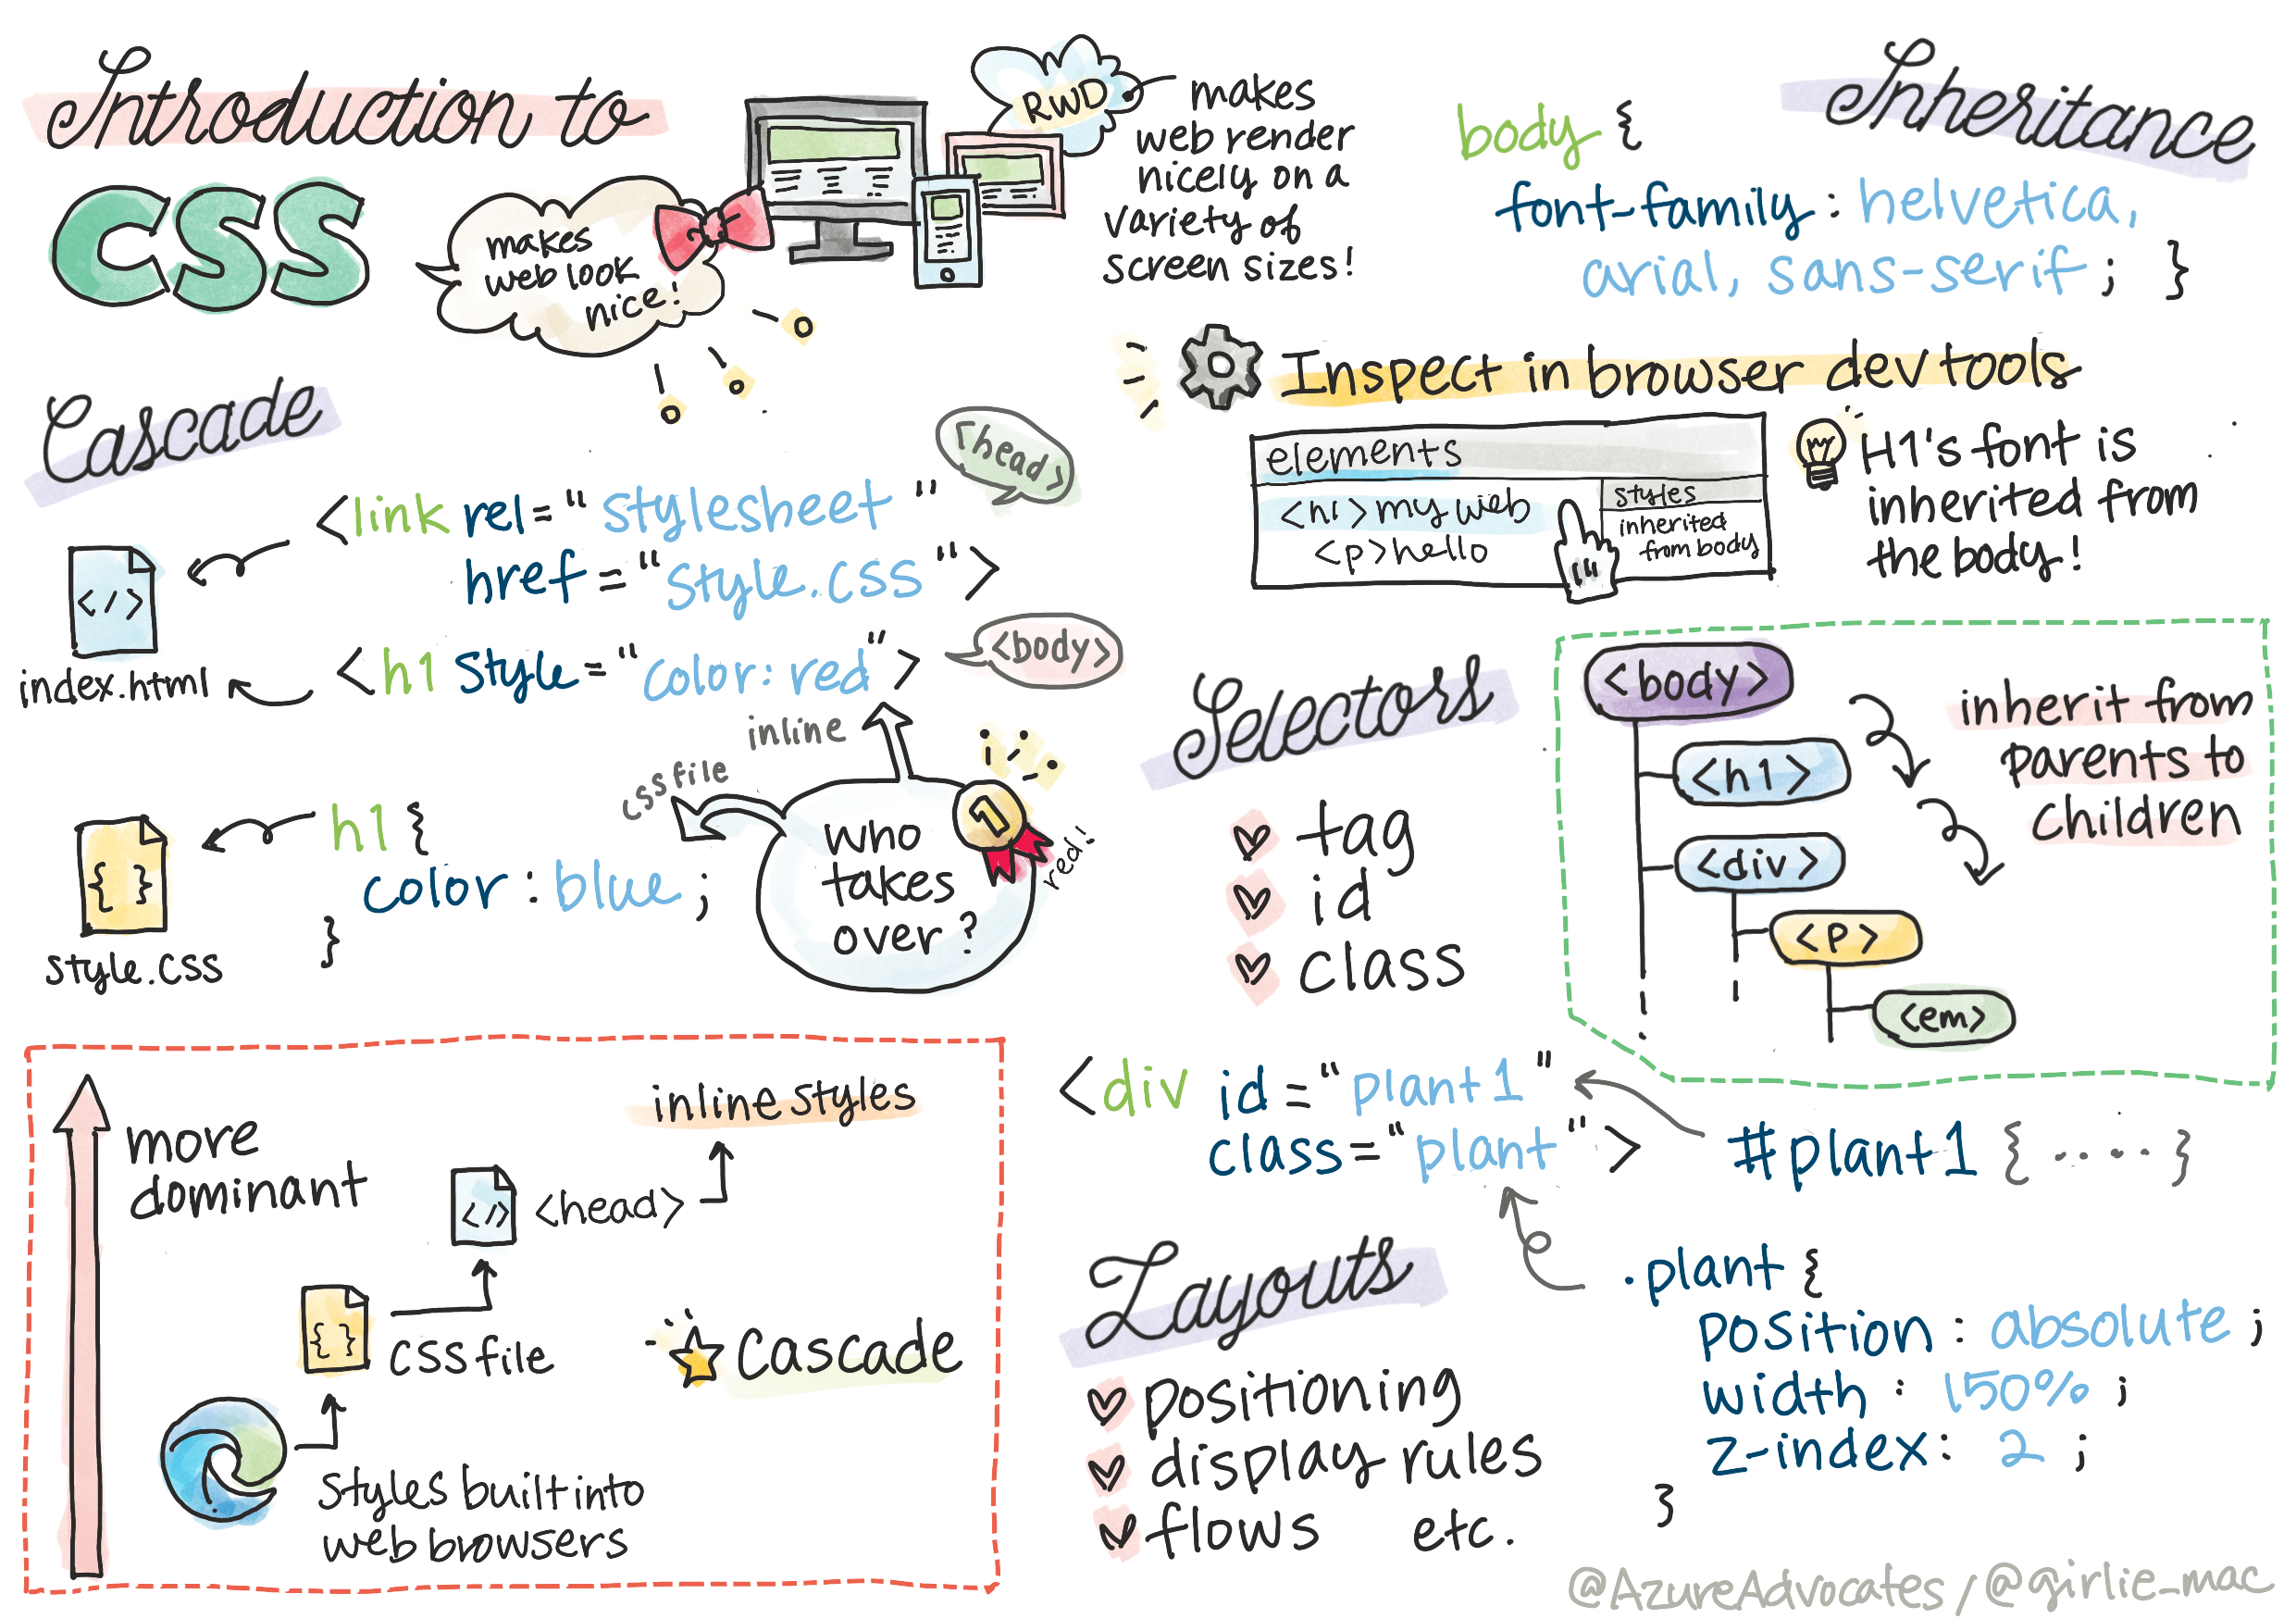 Introduction to
CSS
makes
web look
nice!
RWD
makes
web render
nicely on a
variety of
screen sizes!
Cascade
<head>
<link rel="stylesheet"
href="style.css">
</>
index.html
<h1 style="color: red">
<body>
inline
css file
h1 {
color: blue;
}
{ }
style.css
who
takes
over?
1
red!
more
dominant
inline styles
</>
<head>
{ }
CSS file
Cascade
styles built into
web browsers
Inheritance
body {
font-family: helvetica,
arial, sans-serif; }
Inspect in browser dev tools
elements
<h1>my web
<p>hello
styles
inherited
from body
H1's font is
inherited from
the body!
<body>
<h1>
<div>
<p>
<em>
inherit from
parents to
children
Selectors
tag
id
class
<div id="plant1"
class="plant">
#plant1 {.....}
.plant {
position: absolute;
width: 150%;
z-index: 2;
}
Layouts
positioning
display rules
flows etc.
@AzureAdvocates/@girlie_mac